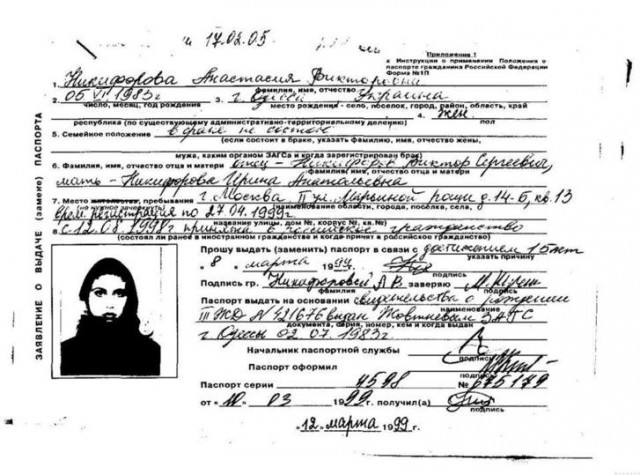 17.02.05
Приложение 1
к Инструкции о применении Положения о
паспорте гражданина Российской Федерации
Форма №1П
1. Никифорова Анастасия Викторовна
фамилия, имя, отчество
2. 05 VI 1983г. 3. г Одесса Украина
число, месяц, год рождения место рождения - село, поселок, город, район, область, край
4. жен.
республика (по существующему административно-территориальному делению) пол
5. Семейное положение в браке не состою
(если состоит в браке, указать фамилию, имя, отчество жены,
мужа, каким органом ЗАГСа и когда зарегистрирован брак)
6. Фамилия, имя, отчество отца и матери отец - Никифоров Виктор Сергеевич,
фамилия, имя, отчество отца и матери
мать - Никифорова Ирина Анатольевна
7. Место жительства, пребывания г. Москва II ул. Марьиной рощи д. 14-Б, кв. 13
(не нужное зачеркнуть) наименование области, города, поселка, села,
регистрация по 27.04.1999г.
название улицы, дом №, корпус №, кв.№)
8. с 12.08.1998г принята в российское гражданство
(состоял ли ранее в иностранном гражданстве и когда принят в российское гражданство)
ЗАЯВЛЕНИЕ О ВЫДАЧЕ (замене) ПАСПОРТА
Прошу выдать (заменить) паспорт в связи с достижением 15 лет
указать причину
"8" марта 1999г.
подпись
Подпись гр. Никифоровой А.В. заверяю
фамилия подпись
Паспорт выдать на основании свидетельства о рождении
наименование
III ЖД N 421676 выдан Жовтневым ЗАГС
документа, серия, номер, кем и когда выдан
г Одессы 02.07.1983г.
Начальник паспортной службы
подпись
Паспорт оформил
Паспорт серии 4598 № 675179
от "10" 03 1999г. получил(а)
подпись
"12" марта 1999 г.